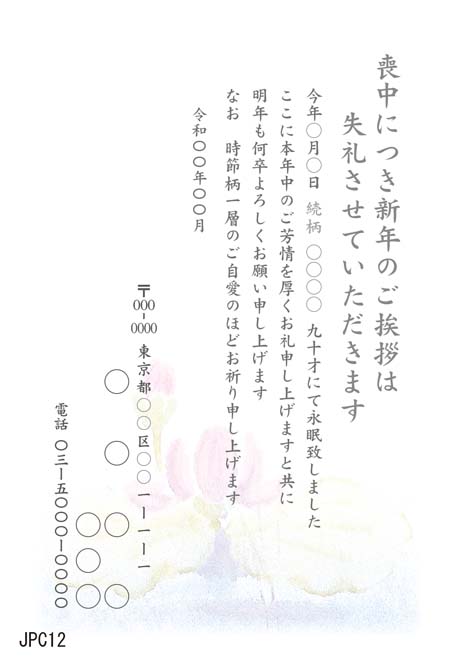 喪中につき新年のご挨拶は
失礼させていただきます
今年〇月〇日 続柄 〇〇〇〇 九十才にて永眠致しました
ここに本年中のご芳情を厚くお礼申し上げますと共に
明年も何卒よろしくお願い申し上げます
なお 時節柄一層のご自愛のほどお祈り申し上げます
令和〇〇年〇〇月
〒000-0000 東京都〇〇区〇〇一ー一ー一
〇 〇 〇〇
〇〇〇
電話 〇三ー五〇〇〇ー〇〇〇〇
JPC12